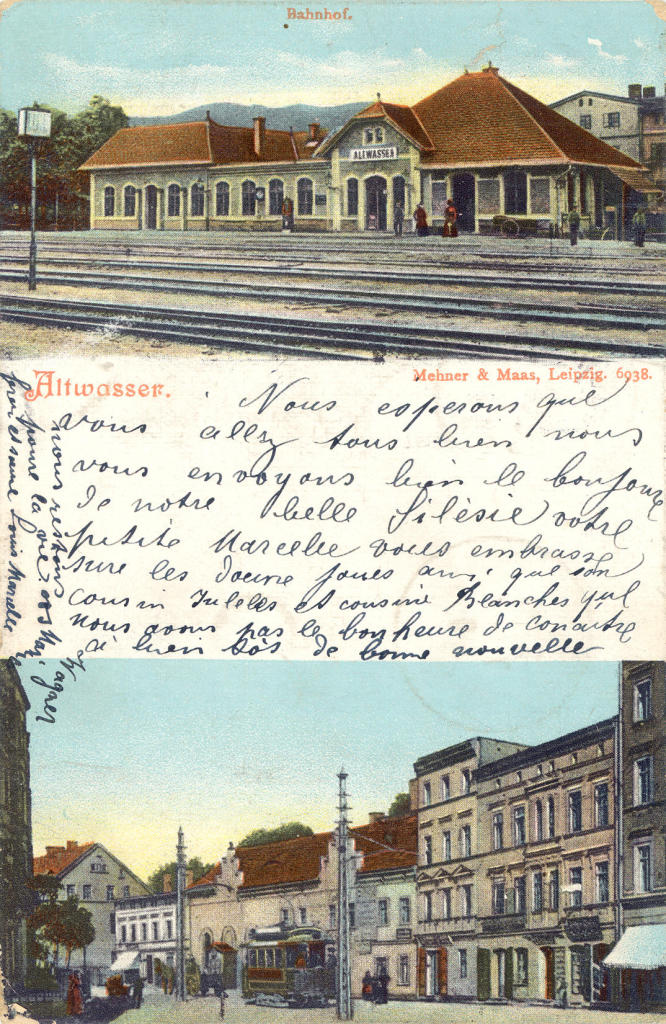 Bahnhof.
ALTWASSER
Altwasser.
Mehner & Maas, Leipzig. 6938.
Nous esperons que
vous allez tous bien nous
vous envoyons bien le bonjour
de notre belle Silésie votre
petite Marcelle vous embrasse
sure les deux joues ainsi que son
cousin Jules et cousine Blanches qul
nous avons pas le bonheure de conaitre
a bien tôs de bonne nouvelle
nous restons
pour la vie vos
Wagner
pour et une tous